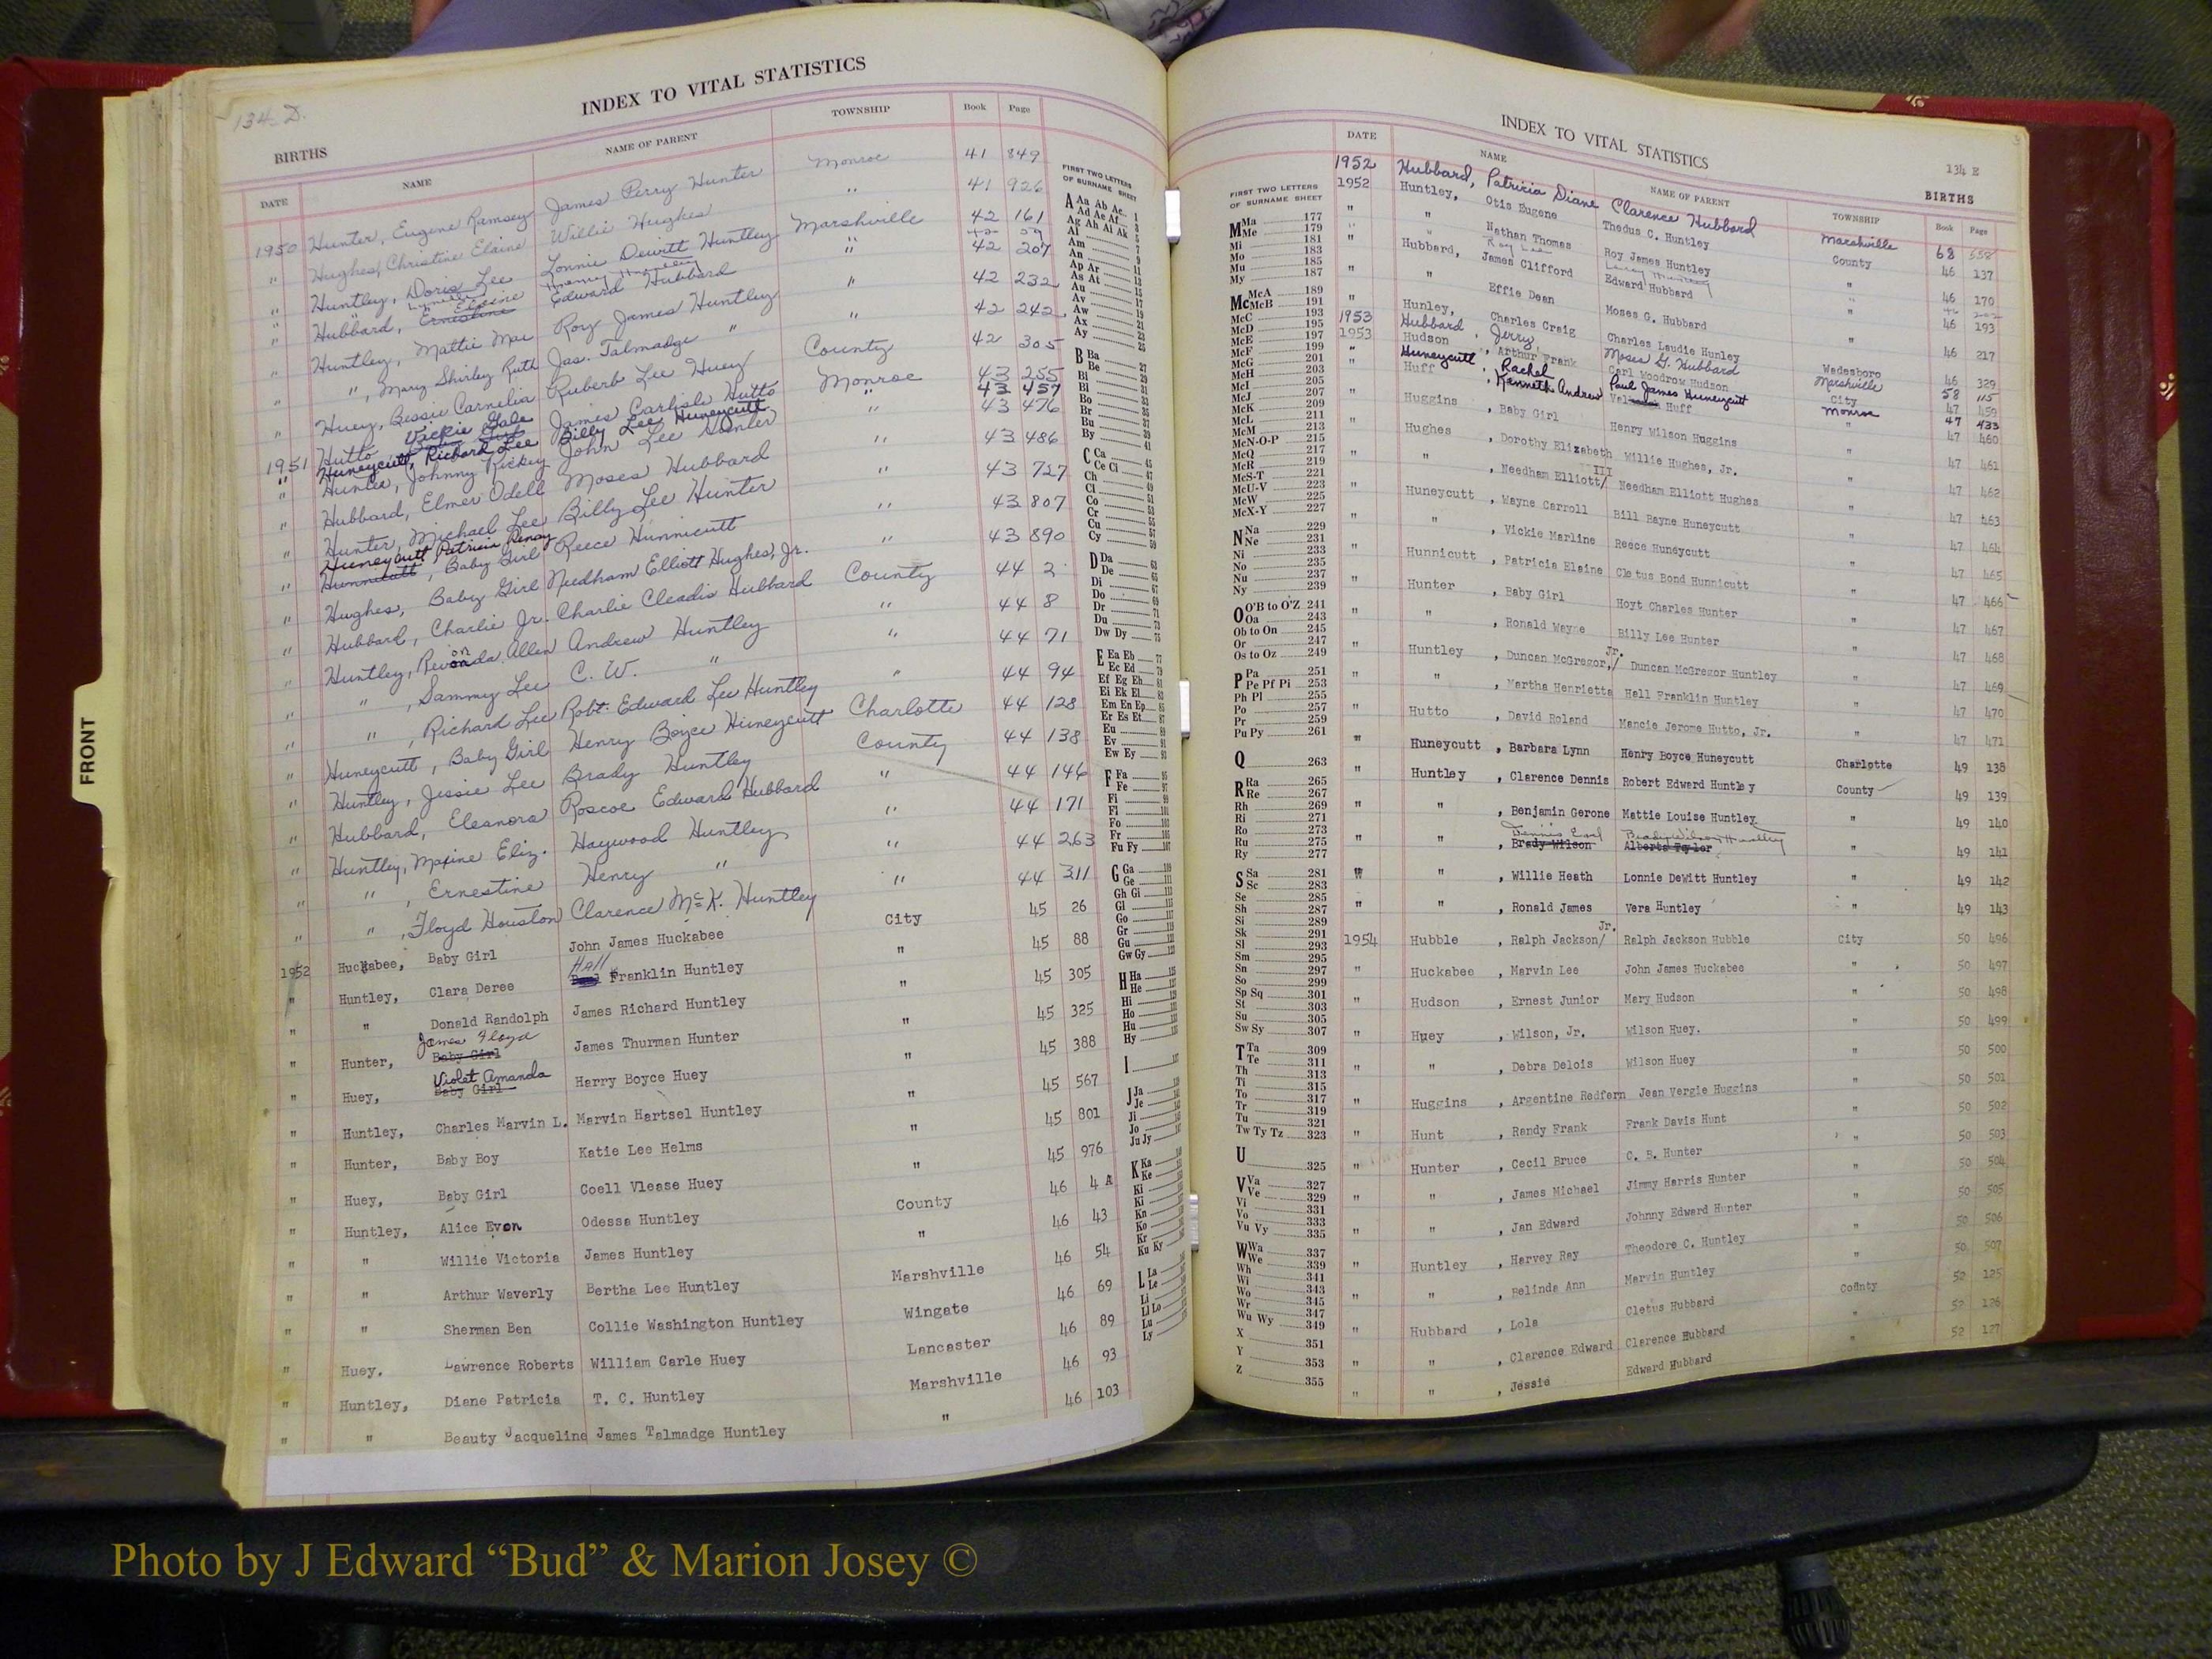 134 D.
INDEX TO VITAL STATISTICS
BIRTHS
DATE NAME NAME OF PARENT TOWNSHIP Book Page
1950 Hunter, Eugene Ramsey James Perry Hunter Monroe 41 849
" Hughes, Christine Elaine Willie Hughes " 41 926
" Huntley, Doris Lee Lonnie Dewitt Huntley Marshville 42 161
" Hubbard, Ernestine Edward Hubbard " 42 207
" Huntley, Mattie Mae Roy James Huntley " 42 232
" " , Mary Shirley Ruth Jas. Talmadge " " 42 242
" Huey, Bessie Carnelia Ruberb Lee Huey County 42 305
1951 Hutto Vickie Gale James Carlisle Hutto Monroe 43 255
" Huneycutt, Richard Lee Billy Lee Huneycutt " 43 457
" Hunter, Johnny Rickey John Lee Hunter " 43 476
" Hubbard, Elmer Odell Moses Hubbard " 43 486
" Hunter, Michael Lee Billy Lee Hunter " 43 727
Huneycutt Patricia Renay
" Hunnicutt, Baby Girl Reece Hunnicutt " 43 807
" Hughes, Baby Girl Needham Elliott Hughes, Jr. " 43 890
" Hubbard, Charlie Jr. Charlie Cleadis Hubbard County 44 2
" Huntley, Allen Andrew Huntley " 44 8
" " , Sammy Lee C. W. " " 44 71
" " , Richard Lee Robt. Edward Lee Huntley " 44 94
" Huneycutt, Baby Girl Henry Boyce Huneycutt Charlotte 44 128
" Huntley, Jessie Lee Brady Huntley County 44 138
" Hubbard, Eleanora Roscoe Edward Hubbard " 44 146
" Huntley, Maxine Eliz. Haywood Huntley " 44 171
" " , Ernestine Henry " " 44 263
" " , Floyd Houston Clarence McK. Huntley " 44 311
1952 Huckabee, Baby Girl John James Huckabee City 45 26
" Huntley, Clara Deree Hall Franklin Huntley " 45 88
" " Donald Randolph James Richard Huntley " 45 305
James Floyd
" Hunter, Baby Girl James Thurman Hunter " 45 325
Violet Amanda
" Huey, Baby Girl Harry Boyce Huey " 45 388
" Huntley, Charles Marvin L. Marvin Hartsel Huntley " 45 567
" Hunter, Baby Boy Katie Lee Helms " 45 801
" Huey, Baby Girl Coell Vlease Huey " 45 976
" Huntley, Alice Evon Odessa Huntley County 46 4 A
" " Willie Victoria James Huntley " 46 43
" " Arthur Waverly Bertha Lee Huntley Marshville 46 54
" " Sherman Ben Collie Washington Huntley Wingate 46 69
" Huey. Lawrence Roberts William Carle Huey Lancaster 46 89
" Huntley, Diane Patricia T. C. Huntley Marshville 46 93
" " Beauty Jacqueline James Talmadge Huntley " 46 103
FIRST TWO LETTERS
OF SURNAME SHEET
A Aa Ab Ac 1
Ad Ae Af 3
Ag Ah Ai Ak 5
Al 7
Am 9
An 11
Ap Ar 13
As At 15
Au 17
Av 19
Aw 21
Ax 23
Ay 25
B Ba 27
Be 29
Bi 31
Bl 33
Bo 35
Br 37
Bu 39
By 41
C Ca 45
Ce Ci
Ch
Cl
Co
Cr
Cu 57
Cy 59
D Da 63
De 65
Di 67
Do 69
Dr 71
Du 73
Dw Dy 75
E Ea Eb 77
Ec Ed 79
Ef Eg Eh 81
Ei Ek El
Em En Ep
Er Es Et
Eu
Ev
Ew Ey
F Fa
Fe
Fi
Fl
Fo
Fr
Fu Fy
G Ga
Ge
Gh Gi
Gl
Go
Gr
Gu
Gw Gy
H Ha
He
Hi
Ho
Hu
Hy
I
J Ja
Je
Ji
Jo
Ju Jy
K Ka
Ke
Ki
Kl
Kn
Ko
Kr
Ku Ky
L La
Le
Li
Ll Lo
Lu
Ly
FRONT
FIRST TWO LETTERS
OF SURNAME SHEET
M Ma 177
Me 179
Mi 181
Mo 183
Mu 185
My 187
Mc McA 189
McB 191
McC 193
McD 195
McE 197
McF 199
McG 201
McH 203
McI 205
McJ 207
McK 209
McL 211
McM 213
McN-O-P 215
McQ 217
McR 219
McS-T 221
McU-V 223
McW 225
McX-Y 227
N Na 229
Ne 231
Ni 233
No 235
Nu 237
Ny 239
O O'B to O'Z 241
Oa 243
Ob to On 245
Or 247
Os to Oz 249
P Pa 251
Pe Pf Pi 253
Ph Pl 255
Po 257
Pr 259
Pu Py 261
Q 263
R Ra 265
Re 267
Rh 269
Ri 271
Ro 273
Ru 275
Ry 277
S Sa 281
Sc 283
Se 285
Sh 287
Si 289
Sk 291
Sl 293
Sm 295
Sn 297
So 299
Sp Sq 301
St 303
Su 305
Sw Sy 307
T Ta 309
Te 311
Th 313
Ti 315
To 317
Tr 319
Tu 321
Tw Ty Tz 323
U 325
V Va 327
Ve 329
Vi 331
Vo 333
Vu Vy 335
W Wa 337
We 339
Wh 341
Wi 343
Wo 345
Wr 347
Wu Wy 349
X 351
Y 353
Z 355
INDEX TO VITAL STATISTICS
134 E
BIRTHS
DATE NAME NAME OF PARENT TOWNSHIP Book Page
1952 Hubbard, Patricia Diane Clarence Hubbard Marshville 68 658
1952 Huntley, Otis Eugene Thedus C. Huntley County 46 137
" " Nathan Thomas Roy James Huntley " 46 170
" Hubbard, James Clifford Edward Hubbard " 46 193
" " Effie Dean Moses G. Hubbard " 46 217
" Hunley, Charles Craig Charles Laudie Hunley Wadesboro 46 329
1953 Hubbard, Jerry Moses G. Hubbard Marshville 58 115
1953 Hudson, Arthur Frank Carl Woodrow Hudson City 47 459
" Huneycutt, Rachel Paul James Huneycutt Monroe 47 433
" Huff, Kenneth Andrew Huff " 47 460
" Huggins, Baby Girl Henry Wilson Huggins " 47 461
" Hughes, Dorothy Elizabeth Willie Hughes, Jr. " 47 462
" " , Needham Elliott/ III Needham Elliott Hughes " 47 463
" Huneycutt, Wayne Carroll Bill Rayne Huneycutt " 47 464
" " , Vickie Marline Reece Huneycutt " 47 465
" Hunnicutt, Patricia Elaine Cletus Bond Hunnicutt " 47 466
" Hunter, Baby Girl Hoyt Charles Hunter " 47 467
" " , Ronald Wayne Billy Lee Hunter " 47 468
" Huntley, Duncan McGregor,/ Jr. Duncan McGregor Huntley " 47 469
" " , Martha Henrietta Hall Franklin Huntley " 47 470
" Hutto, David Roland Mancie Jerome Hutto, Jr. " 47 471
" Huneycutt, Barbara Lynn Henry Boyce Huneycutt Charlotte 49 138
" Huntley, Clarence Dennis Robert Edward Huntley County 49 139
" " , Benjamin Gerone Mattie Louise Huntley " 49 140
Dennis Earl Brady Wilson Huntley
" " , Brady Wilson Alberta Taylor " 49 141
" " , Willie Heath Lonnie DeWitt Huntley " 49 142
" " , Ronald James Vera Huntley " 49 143
1954 Hubble, Ralph Jackson/ Jr. Ralph Jackson Hubble City 50 496
" Huckabee, Marvin Lee John James Huckabee " 50 497
" Hudson, Ernest Junior Mary Hudson " 50 498
" Huey, Wilson, Jr. Wilson Huey. " 50 499
" " , Debra Delois Wilson Huey " 50 500
" Huggins, Argentine Redfern Jean Vergie Huggins " 50 501
" Hunt, Randy Frank Frank Davis Hunt " 50 502
" Hunter, Cecil Bruce C. B. Hunter " 50 503
" " , James Michael Jimmy Harris Hunter " 50 504
" " , Jan Edward Johnny Edward Hunter " 50 505
" Huntley, Harvey Ray Theodore C. Huntley " 50 506
" " , Belinda Ann Marvin Huntley " 50 507
" Hubbard, Lola Cletus Hubbard County 52 125
" " , Clarence Edward Clarence Hubbard " 52 126
" " , Jessie Edward Hubbard " 52 127
Photo by J Edward “Bud” & Marion Josey ©